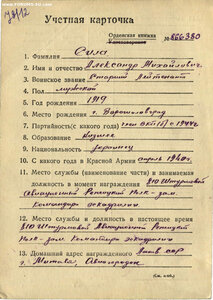 Учетная карточка
Орденская книжка
№ 826380
1. Фамилия Сила
2. Имя и отчество Александр Михайлович
3. Воинское звание Старший Лейтенант
4. Пол мужской
5. Год рождения 1919
6. Место рождения г. Ворошиловград
7. Партийность (с какого года) член ВКП(б) с 1944 г.
8. Образование
9. Национальность украинец
10. С какого года в Красной Армии апрель 1940 г.
11. Место службы (наименование части) и занимаемая
должность в момент награждения 810 Штурмовой
Авиационный Речицкий Полк - зам.
Командира эскадрилии
12. Место службы и должность в настоящее время
810 Штурмовой Авиационный Речицкий
Полк - зам. Командира эскадрилии
13. Домашний адрес награжденного
г. Митава, Авиагородок